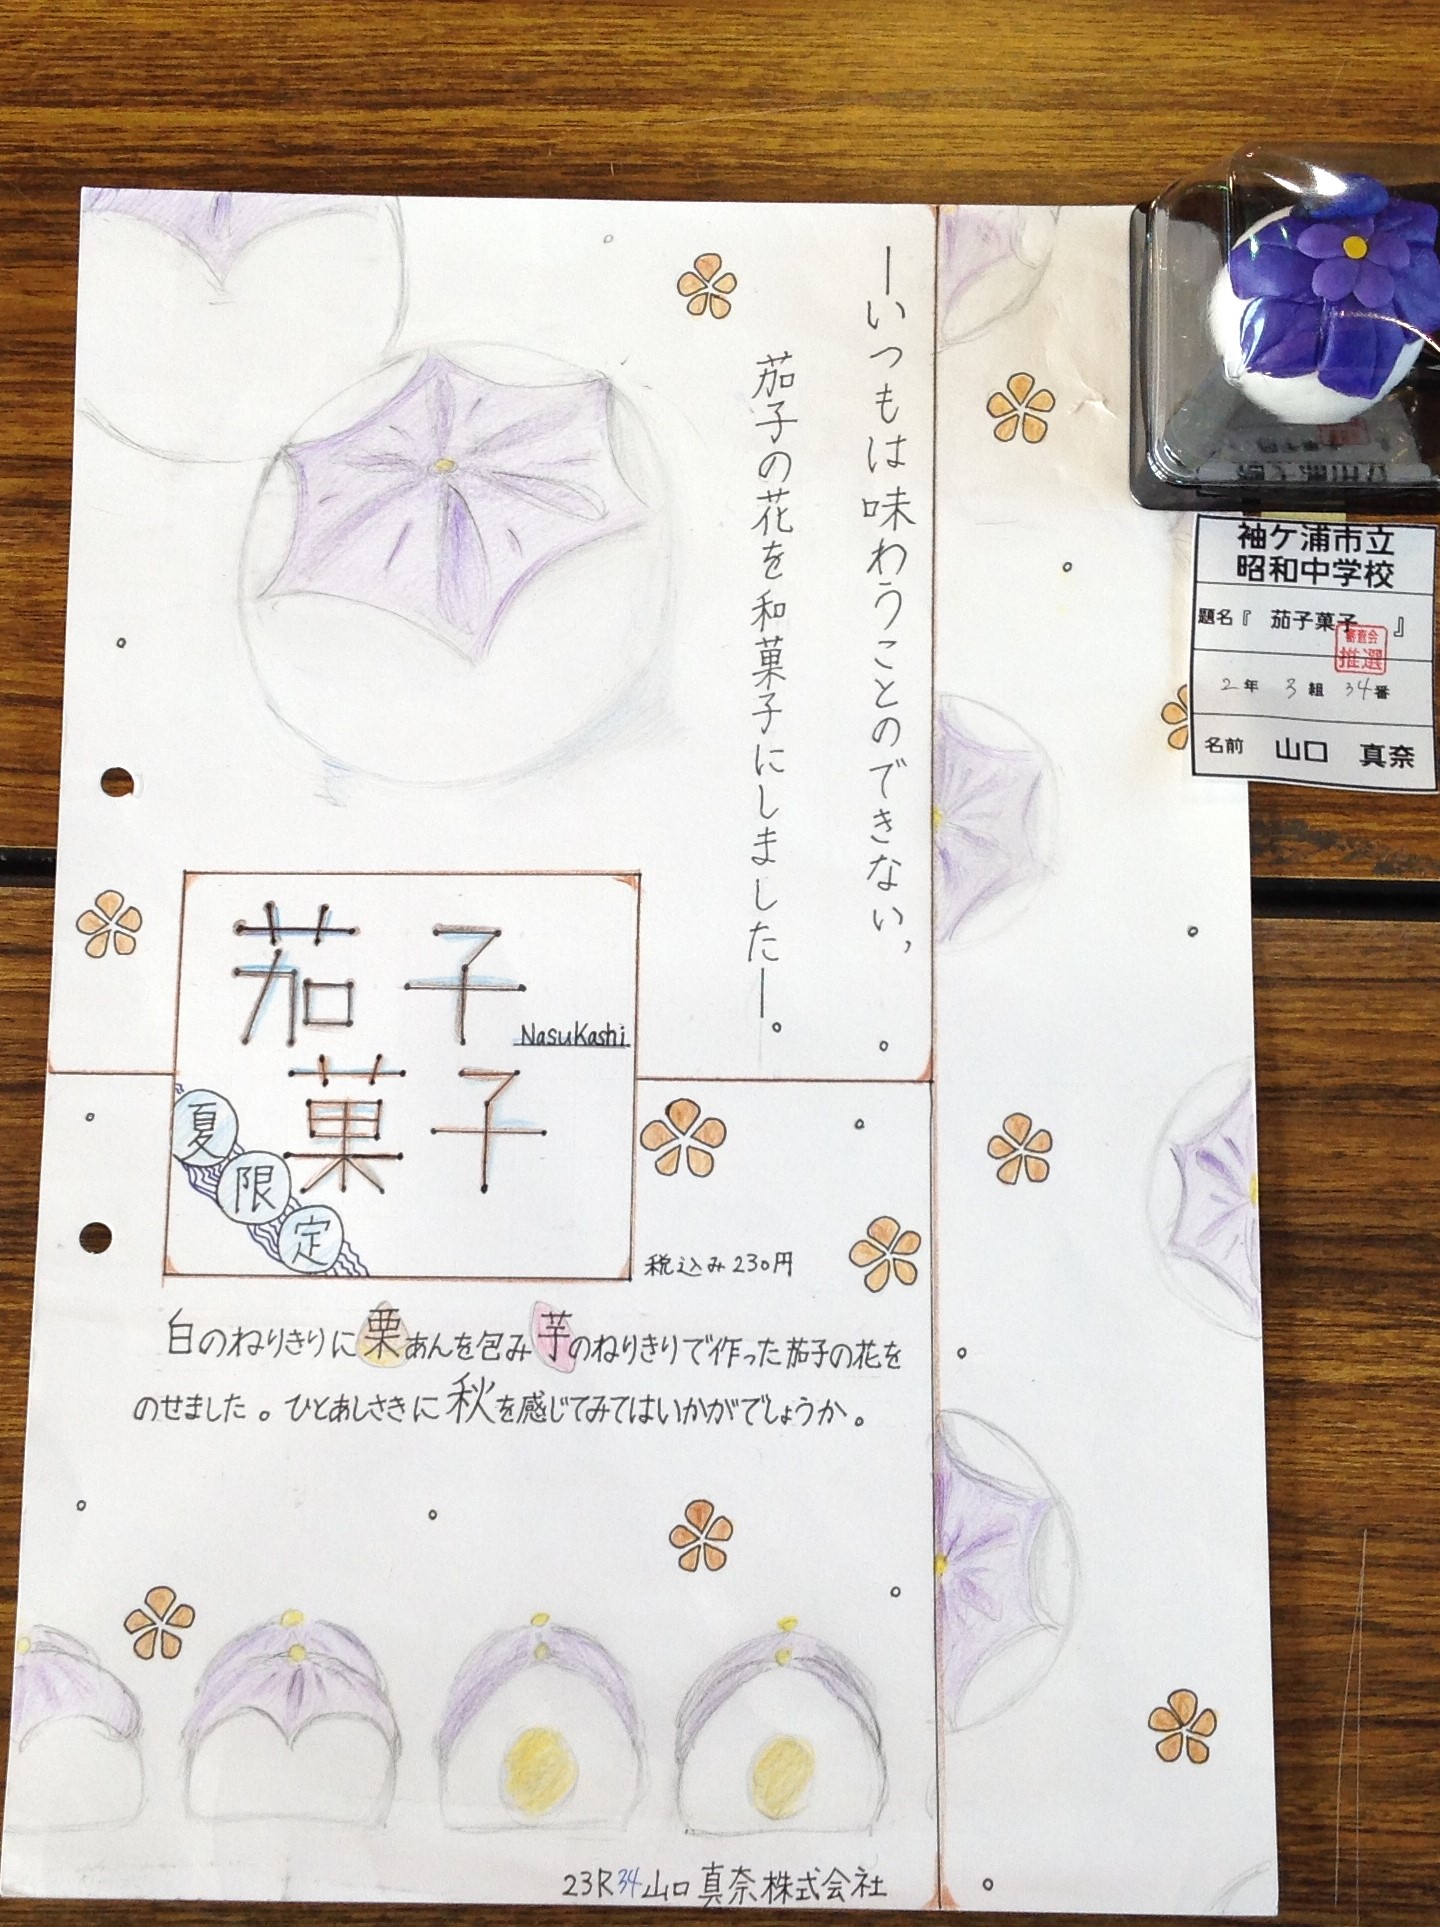 ―いつもは味わうことのできない、
茄子の花を和菓子にしました―。
茄子
NasuKashi
菓子
夏限定
税込み230円
白のねりきりに栗あんを包み芋のねりきりで作った茄子の花を
のせました。ひとあしさきに秋を感じてみてはいかがでしょうか。
23R34山口真奈株式会社
袖ケ浦市立
昭和中学校
題名『 茄子菓子 』
審査会
推選
2年 3組 34番
名前 山口 真奈